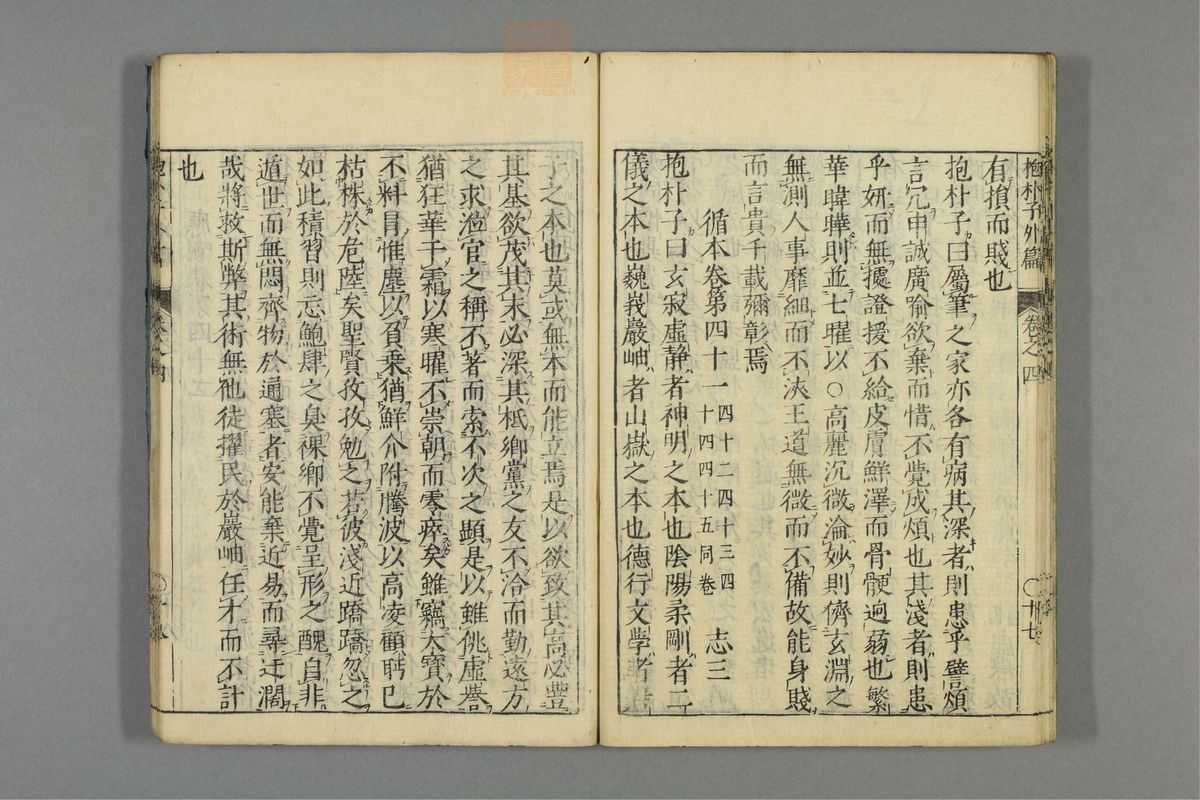 抱朴子外篇 卷之四 〇卅七
有損而賤也
抱朴子曰屬筆之家亦各有病其深者則患乎譬煩
言冗申誠廣喻欲棄而惜不覺成煩也其淺者則患
乎妍而無據證援不給皮膚鮮澤而骨骾迥蒻也繁
華暐曄則並七曜以〇高麗沉微淪妙則儕玄淵之
無測人事靡細而不浹王道無微而不備故能身賤
而言貴千載彌彰焉
循本卷第四十一 四十二四十三四十四四十五同卷 志三
抱朴子曰玄寂虛靜者神明之本也陰陽柔剛者二
儀之本也巍峩巖岫者山嶽之本也德行文學者君
子之本也莫或無本而能立焉是以欲致其高必豐
其基欲茂其末必深其柢鄉黨之友不洽而勤遠方
之求涖官之稱不著而索不次之顯是以雖佻虛譽
猶狂華干霜以寒曜不崇朝而零瘁矣雖竊大寶於
不料冒惟塵以負乗猶鮮介附騰波以高凌顧眄已
枯株於危陸矣聖賢孜孜勉之若彼淺近蹻蹻忽之
如此積習則忘鮑肆之臭裸鄉不覺呈形之醜自非
遁世而無悶齊物於通塞者安能棄近易而尋迂濶
哉將救斯弊其術無他徒擢民於巖岫任才而不計
也